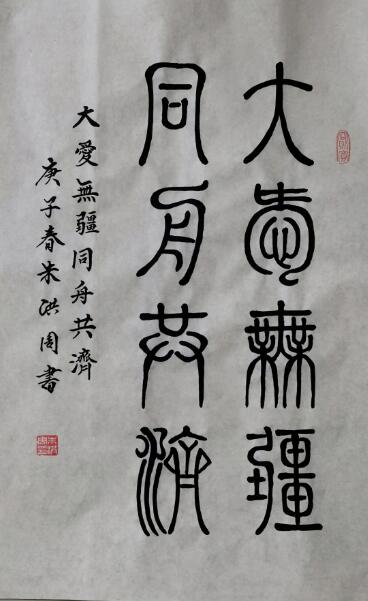 大愛無疆
同舟共濟
大愛無疆同舟共濟
庚子春朱洪周書